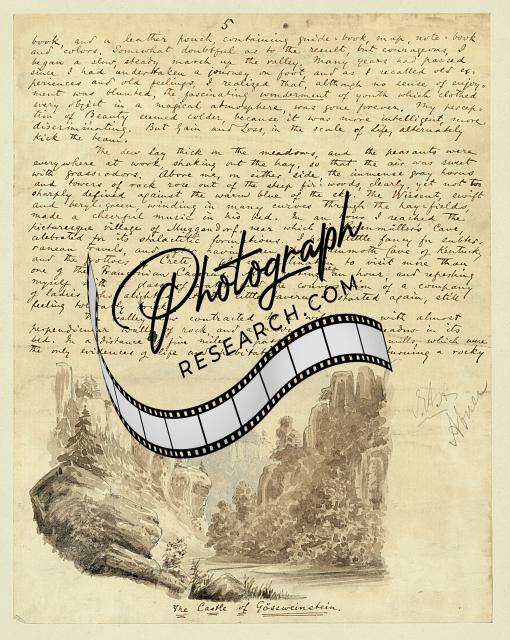 5
book, and a leather pouch, containing guide-book, map, note-book
and colors. Somewhat doubtful as to the result, but courageous, I
began a slow, steady march up the valley. Many years had passed
since I had undertaken a journey on foot, and as I recalled old ex-
periences and old feelings, I realized that, although no sense of enjoy-
ment was blunted, the fascinating wonderment of youth, which clothed
every object in a magical atmosphere, was gone forever. My percep-
tion of Beauty seemed colder, because it was more intelligent, more
discriminating. But Gain and Loss, in the scale of life, alternately
kick the beam.
The dew lay thick on the meadows, and the peasants were
everywhere at work, shaking out the hay, so that the air was sweet
with grass-odors. Above me, on either side, the immense gray horns
and towers of rock rose out of the steep fir-woods, clearly, yet not too
sharply defined against the warm blue of the sky. The Wiesent, swift
and beryl-green, winding in many curves through the hay-fields,
made a cheerful music in his bed. In an hour I reached the
picturesque village of Muggendorf, near which is Rosenmüller's Cave,
celebrated for its stalactitic formations. I little fancy for subter-
ranean travels, and having Mammoth Cave of Kentucky
and the grottoes Crete visit more than
one of the Franconian Cav an hour, and refreshing
myself with gl the conver of a company
of ladies who alight tavern, I started again, still
feeling to
valley contracted with almost
perpendicular walls of rock, and adow in its
bed. In a distance five miles pass mills, which were
the only evidences of life and habitati rounding a rocky
Photograph
RESEARCH.COM
The Castle of Gössweinstein.